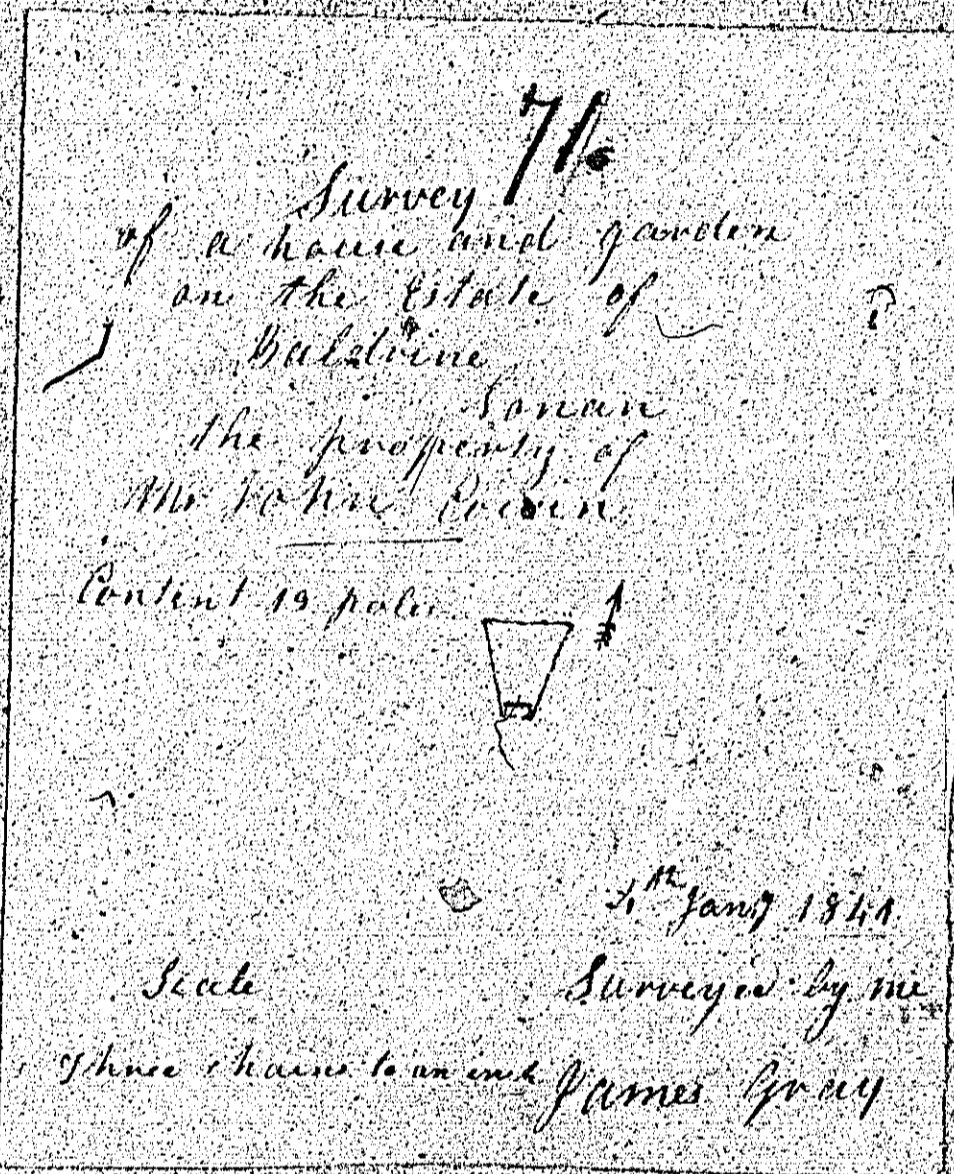 Survey
of a house and garden
on the Estate of
Baldrine
Lonan
the property of
Mr John
Content 19 poles
4th Jany 1841
Scale
Surveyed by me
Three chains to an inch James Gray